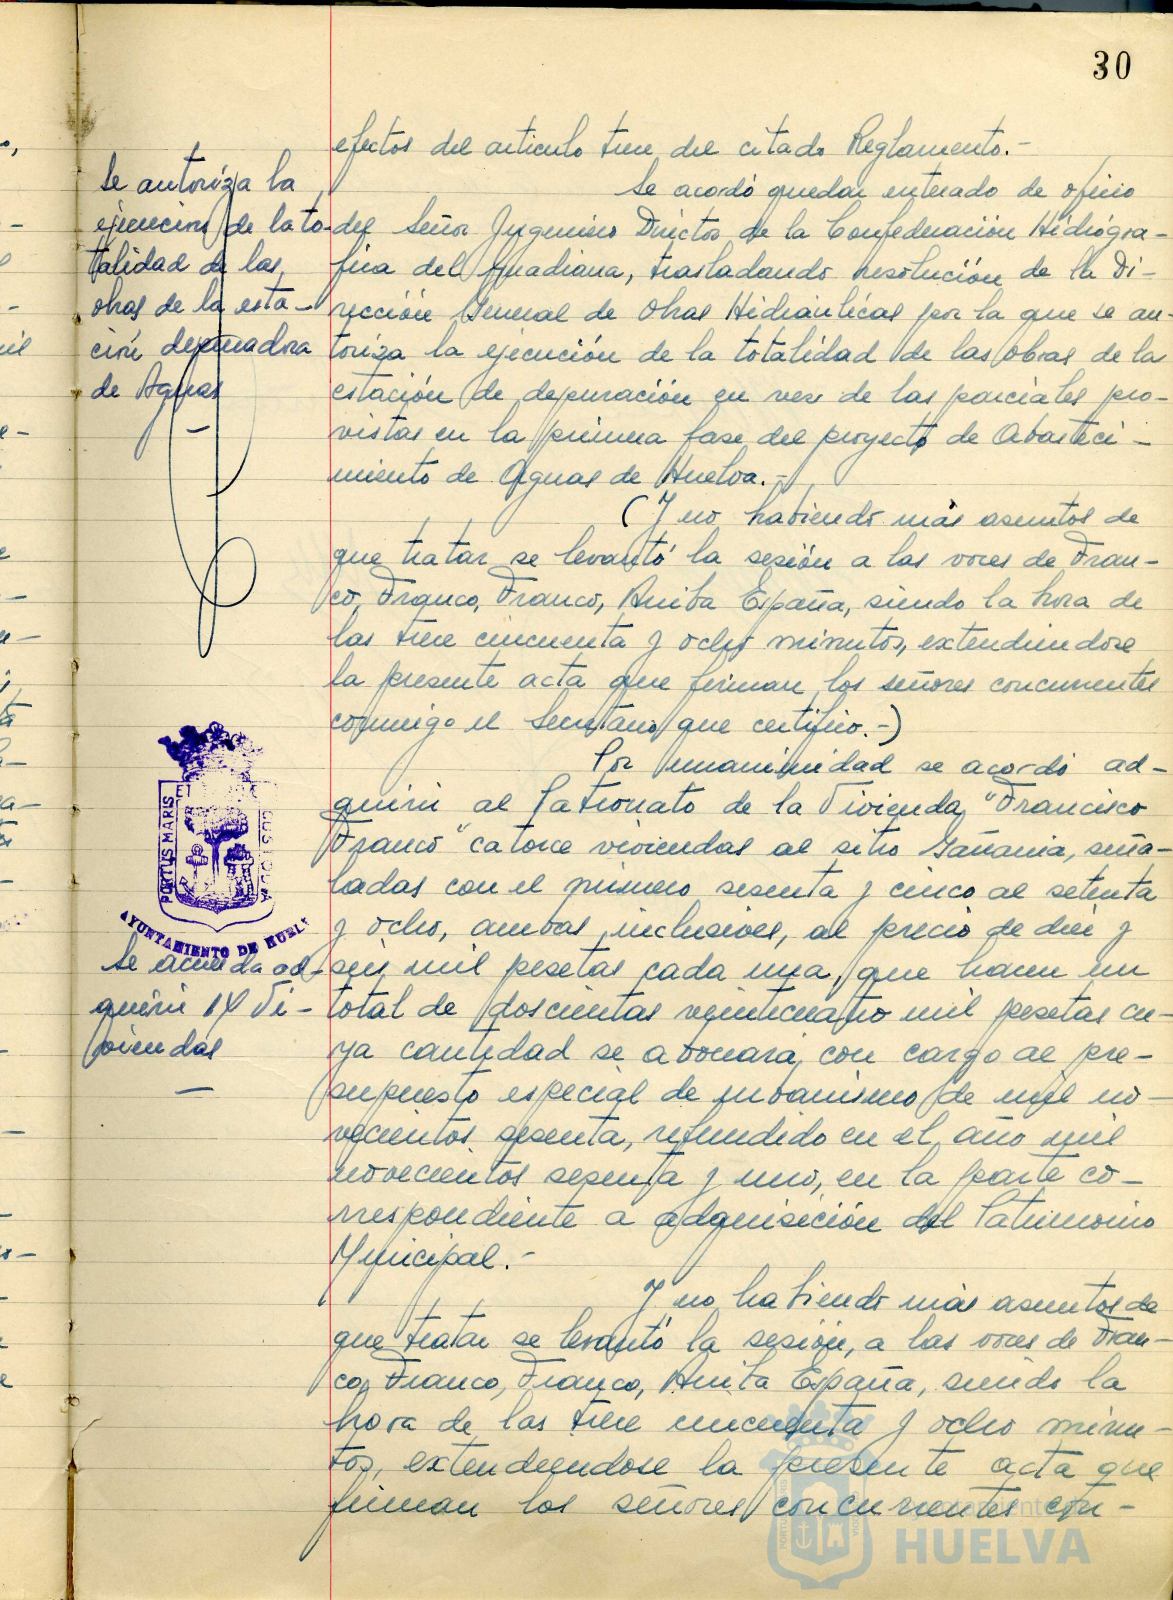 30
efectos del articulo trece del citado Reglamento.-
Se autoriza la
ejecución de la to-
talidad de las
obras de la esta-
ción depuradora
de Aguas
Se acordó quedar enterado de oficio
del Señor Ingeniero Director de la Confederación Hidrográ-
fica del Guadiana, trasladando resolución de la Di-
rección General de Obras Hidráulicas por la que se au-
toriza la ejecución de la totalidad de las obras de la
estación de depuración en vez de las parciales pro-
vistas en la primera fase del proyecto de Abasteci-
miento de Aguas de Huelva.-
(Y no habiendo más asuntos de
que tratar se levantó la sesión a las voces de Fran-
co, Franco, Franco, Arriba España, siendo la hora de
las trece cincuenta y ocho minutos, extendiendose
la presente acta que firman los señores concurrentes
conmigo el Secretario que certifico.-)
PORTUS MARIS ET CUSTODIA
AYUNTAMIENTO DE HUELV
Se acuerda ad-
quirir 14 Vi-
viendas
Por unanimidad se acordó ad-
quirir al Patronato de la Vivienda "Francisco
Franco" catorce viviendas al sitio Gañania, seña-
ladas con el número sesenta y cinco al setenta
y ocho, ambas inclusives, al precio de diez y
seis mil pesetas cada una, que hacen un
total de doscientas veinticuatro mil pesetas cu-
ya cantidad se abonará con cargo al pre-
supuesto especial de urbanismo de mil no-
vecientos sesenta, refundido en el año mil
novecientos sesenta y uno, en la parte co-
rrespondiente a adquisición del Patrimonio
Municipal.-
Y no habiendo más asuntos de
que tratar se levantó la sesión, a las voces de Fran-
co, Franco, Franco, Arriba España, siendo la
hora de las trece cincuenta y ocho minu-
tos, extendiendose la presente acta que
firman los señores concurrentes con-
Ayuntamiento de
HUELVA